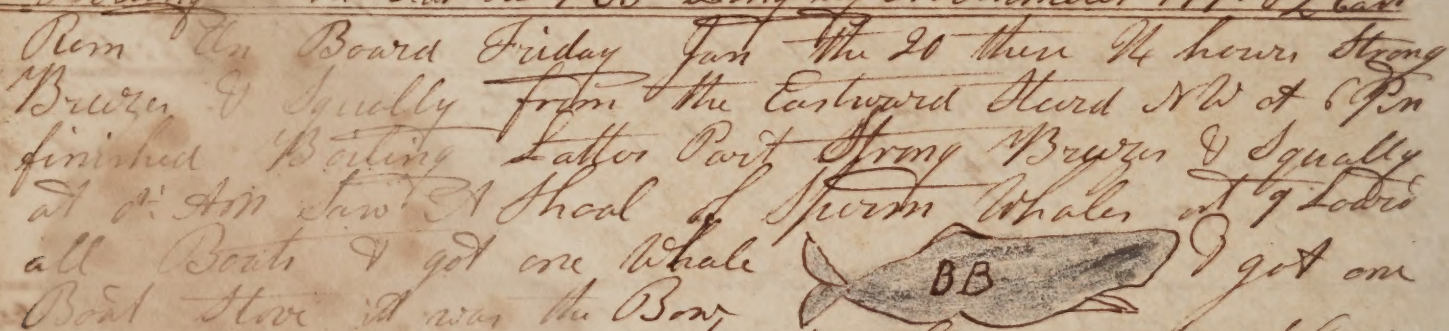 Rem On Board Friday Jan the 20 these 24 hours Strong
Breezes & Squally from the Eastward Steerd NW at 6 Pm
finished Boiling Latter Part Strong Breezes & Squally
at Am Saw A Shoal of Sperm Whales at 9 Lowrd
all Boats & got one Whale BB & got one
Boat Stove it was the Bow